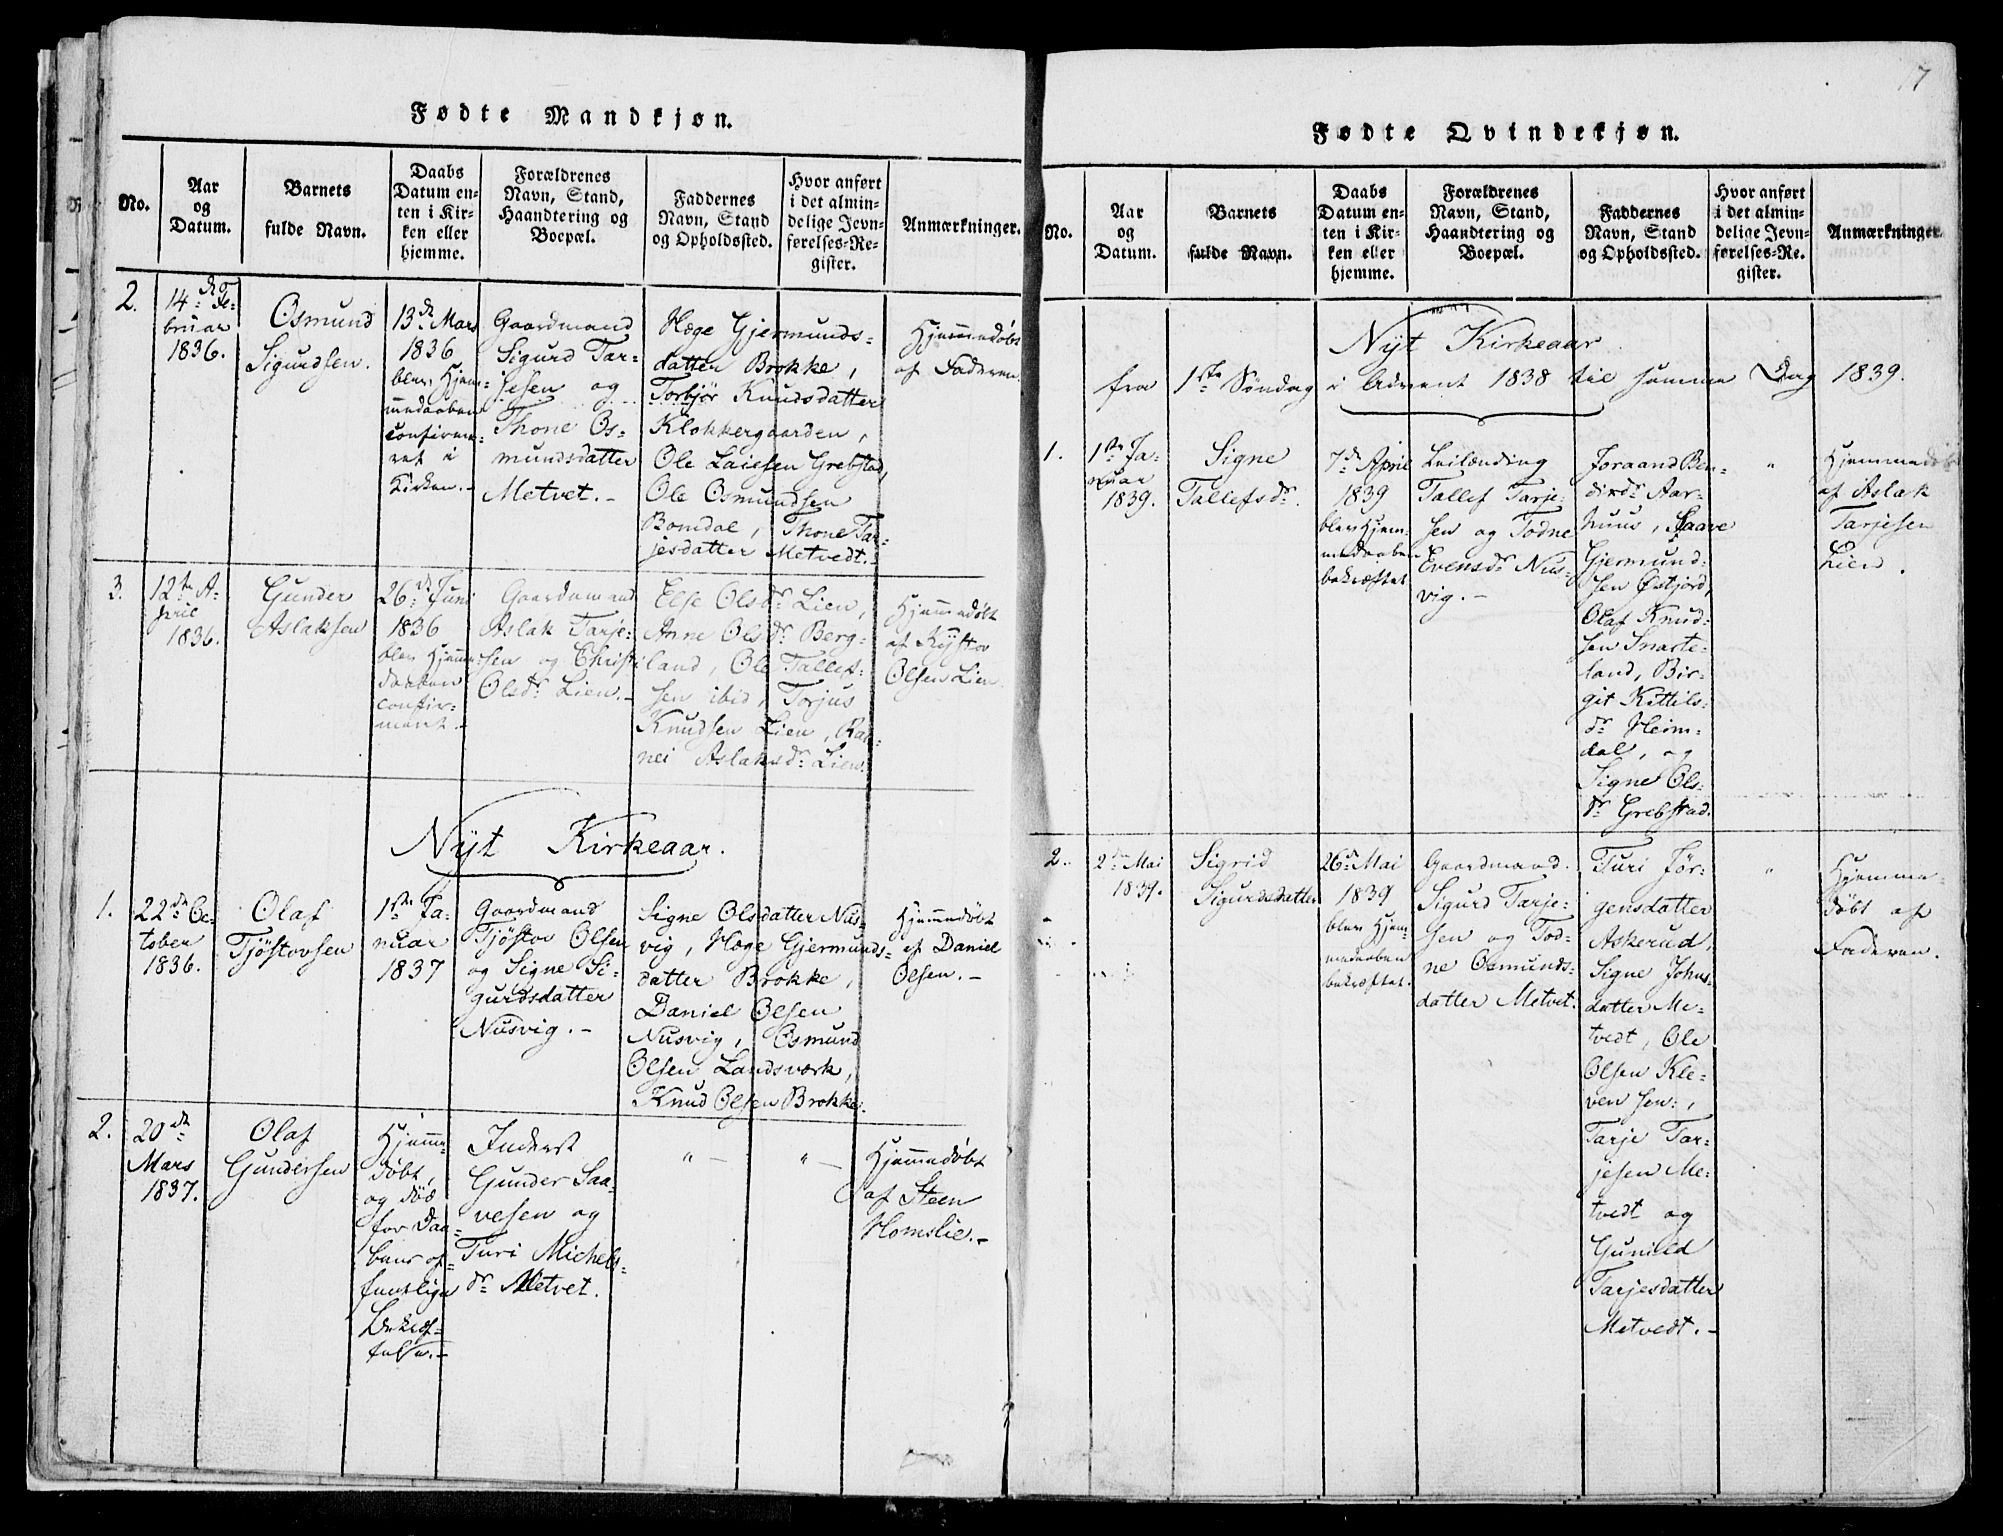 Fødte Mandkjøn.
No.
Aar
og
Datum.
Barnets
fulde Navn.
Daabs
Datum en-
ten i Kir-
ken eller
hjemme.
Forældrenes
Navn, Stand,
Haandtering og
Boepæl.
Faddernes
Navn, Stand
og Opholdssted.
Hvor anført
i det almin-
delige Jevn-
førelses-Re-
gister.
Anmærkninger.
2.
14de Fe-
bruar
1836.
Osmund
Sigurdsen.
13de Mars
1836
blev Hjem-
medaaben
confirme-
ret i
Kirken.-
Gaardmand
Sigurd Tar-
jesen og
Thone Os-
mundsdatter
Metvet.-
Hæge Gjermunds-
datter Brokke,
Torbjør Knudsdatter
Klokkergaarden,
Ole Laiesen Grebstad,
Ole Osmundsen
Bomdal, Thone Tar-
jesdatter Metvedt.-
Hjemmedøbt
af Faderen.
3.
12te A-
pril
1836.
Gunder
Aslaksen
26de Juni
1836
blev Hjemme-
daaben
confir-
meret.-
Gaardmand
Aslak Tarje-
sen og Christi
Olsdr Lien.-
Else Olsdr Lien,
Anne Olsdr Berg-
land, Ole Tallef-
sen ibid, Tarjus
Knudsen Lien, Rag-
nei Aslaksdr Lien.
Hjemmedøbt
af Kjøstov
Olsen Lien.
Nyt Kirkeaar.
1.
22de Oc-
tober
1836.
Olaf
Tjøstovsen
1ste Ja-
nuar
1837
Gaardmand
Tjøstov Olsen
og Signe Si-
gurdsdatter
Nusvig.-
Signe Olsdatter Nus-
vig, Hæge Gjermunds-
datter Brokke,
Daniel Olsen
Nusvig, Osmund
Olsen Landsværk,
Knud Olsen Brokke.
Hjemmedøbt
af Daniel
Olsen.-
2.
20de
Mars
1837.
Olaf
Gundersen
Hjemme-
døbt,
og død
for Daa-
bens of-
fentlige
Bekræf-
telse.-
Inderst
Gunder Saa-
vesen og
Turi Michels-
dr Metvet.
" -
" -
Hjemmedøbt
af Steen
Homslie.-
7
Fødte Qvindekjøn.
No.
Aar
og
Datum.
Barnets
fulde Navn.
Daabs
Datum en-
ten i Kir-
ken eller
hjemme.
Forældrenes
Navn, Stand,
Haandtering og
Boepæl.
Faddernes
Navn, Stand
og Opholdssted.
Hvor anført
i det almin-
delige Jevn-
førelses-Re-
gister.
Anmærkninger.
Nyt Kirkeaar
fra 1ste Søndag i Advent 1838 til samme Dag 1839.
1.
1ste Ja-
nuar
1839.
Signe
Tallefsdr.
7de April
1839
blev Hjem-
medaaben
bekræftet
Leilænding
Tallef Tarje-
sen og Todne
Evensdr Nus-
vig.-
Joraand Ben-
dixdr Aar-
huus, Saave
Gjermund-
sen Østjord,
Olaf Knud-
sen Snarte-
land, Bir-
git Kittils-
dr Heim-
dal, og
Signe Ols-
dr Grebstad.
"
Hjemmedøbt
af Aslak
Tarjesen
Lien.
2.
2den Mai
1839.
Sigrid
Sigurdsdatter
26de Mai
1839
blev Hjem-
medaaben
bekræftet.
Gaardmand
Sigurd Tarje-
sen og Tod-
ne Osmunds-
datter Metvet.
Turi Jør-
gensdatter
Askerud,
Signe Johns-
datter Me-
tvedt, Ole
Olsen Kle-
ven sen:,
Tarje Tar-
jesen Me-
tvedt og
Gunild
Tarjesdatter
Metvedt.-
"
Hjemme-
døbt af
Faderen.